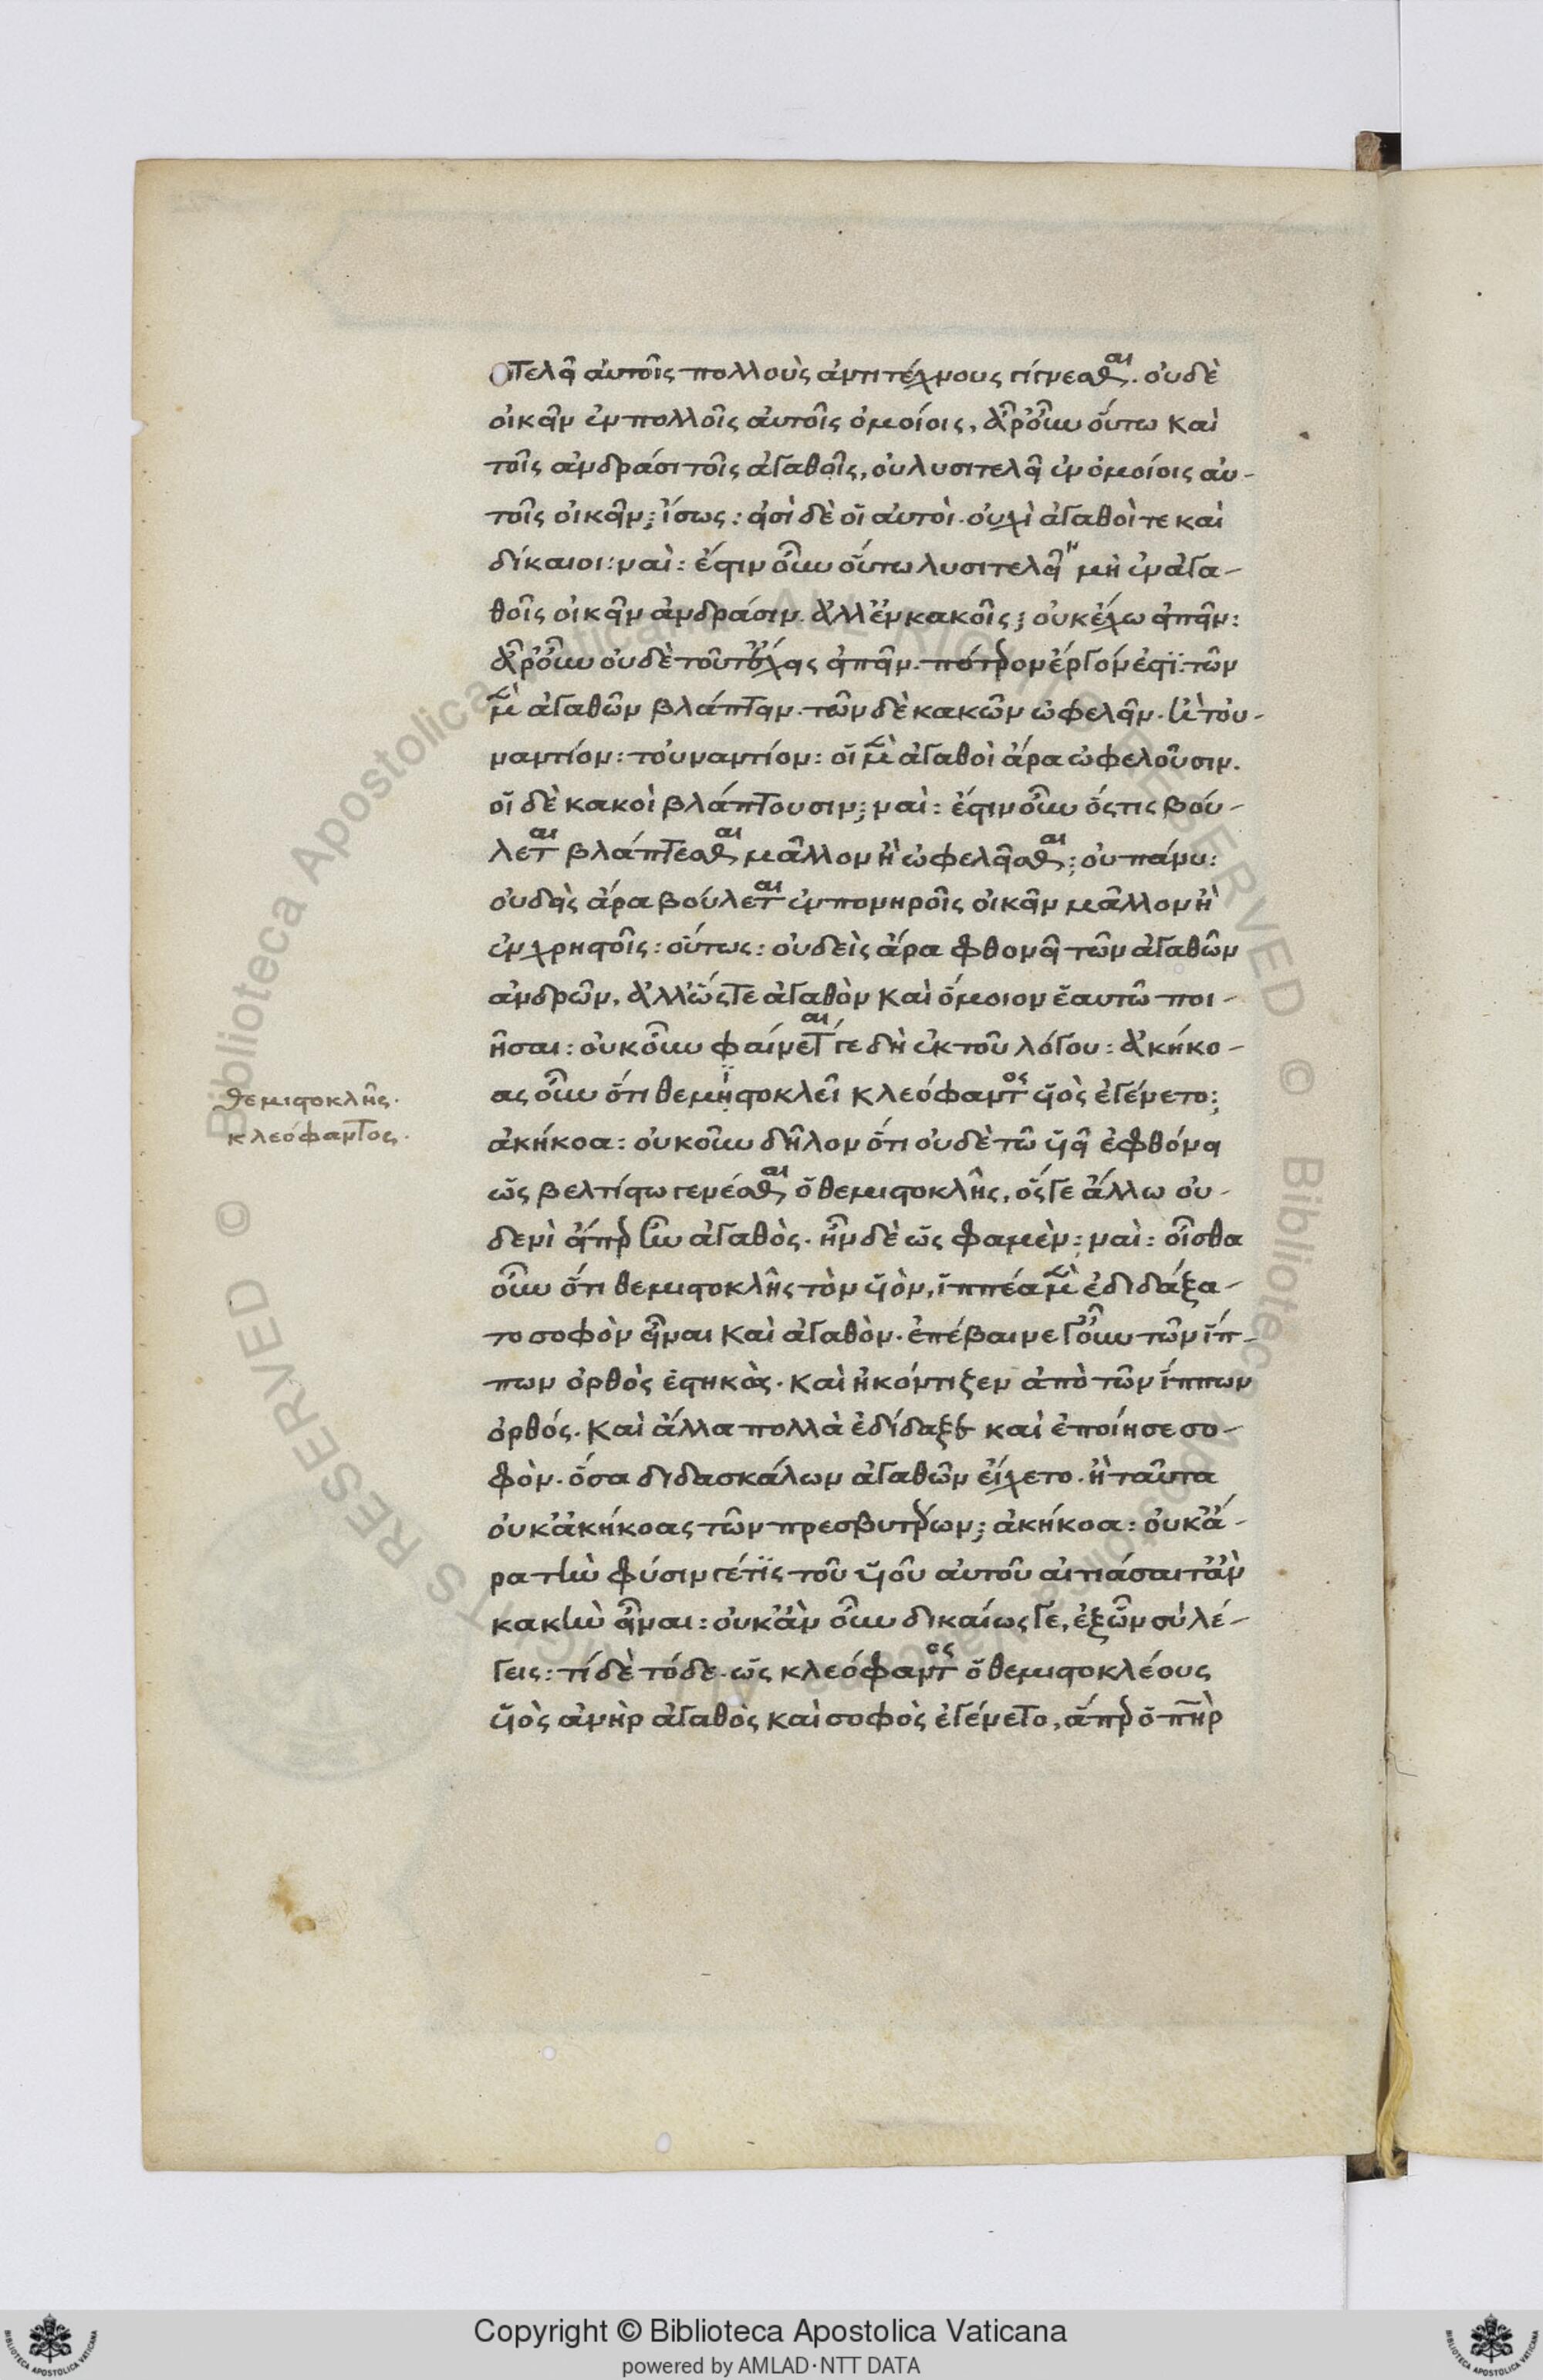 σιτελεῖ αὐτοῖς πολλοὺς ἀντιτέχνους γίγνεσθαι. οὐδὲ
οἰκεῖν ἐν πολλοῖς αὐτοῖς ὁμοίοις, ἆρ' οὖν οὕτω καὶ
τοῖς ἀνδράσι τοῖς ἀγαθοῖς, οὐ λυσιτελεῖ ἐν ὁμοίοις αὐ-
τοῖς οἰκεῖν; ἴσως: εἰσὶ δὲ οἱ αὐτοὶ. οὐχὶ ἀγαθοί τε καὶ
δίκαιοι: ναὶ: ἔστιν οὖν ὅτω λυσιτελεῖ ἢ μὴ ἐν ἀγα-
θοῖς οἰκεῖν ἀνδράσιν. ἀλλ' ἐν κακοῖς; οὐκ ἔχω εἰπεῖν:
ἆρ' οὖν οὐδὲ τοῦτ' ἔχεις εἰπεῖν. πότερον ἔργον ἐστὶ: τῶν
μὲν ἀγαθῶν βλάπτειν. τῶν δὲ κακῶν ὠφελεῖν. ἢ τοὐ-
ναντίον: τοὐναντίον: οἱ μὲν ἀγαθοὶ ἄρα ὠφελοῦσιν.
οἱ δὲ κακοὶ βλάπτουσιν; ναὶ: ἔστιν οὖν ὅςτις βού-
λεται βλάπτεσθαι μᾶλλον ἢ ὠφελεῖσθαι; οὐ πάνυ:
οὐδεὶς ἄρα βούλεται ἐν πονηροῖς οἰκεῖν μᾶλλον ἢ
ἐν χρηστοῖς: οὕτως: οὐδεὶς ἄρα φθονεῖ τῶν ἀγαθῶν
ἀνδρῶν, ἀλλ' ὥςτε ἀγαθὸν καὶ ὅμοιον ἑαυτῶ ποι-
ῆσαι: οὐκοῦν φαίνεταί γε δὴ ἐκ τοῦ λόγου: ἀκήκο-
ας οὖν ὅτι θεμηστοκλεῖ κλεόφαντος υἱὸς ἐγένετο;
ἀκήκοα: οὐκοῦν δῆλον ὅτι οὐδὲ τῶ υἱεῖ ἐφθόνει
ὡς βελτίστω γενέσθαι ὁ θεμιστοκλῆς, ὅς γε ἄλλω οὐ-
δενὶ εἴπερ ἦν ἀγαθὸς. ἦν δὲ ὥς φαμὲν: ναὶ: οἶσθα
οὖν ὅτι θεμιστοκλῆς τὸν υἱὸν, ἱππέα μὲν ἐδιδάξα-
το σοφὸν εἶναι καὶ ἀγαθὸν. ἐπέβαινε γ' οὖν τῶν ἵπ-
πων ὀρθὸς ἑστηκὼς. καὶ ἠκόντιζεν ἀπὸ τῶν ἵππων
ὀρθός. καὶ ἄλλα πολλὰ ἐδίδαξε καὶ ἐποίησε σο-
φὸν. ὅσα διδασκάλων ἀγαθῶν εἴχετο. ἢ ταῦτα
οὐκ ἀκήκοας τῶν πρεσβυτέρων; ἀκήκοα: οὐκ ἄ-
ρα τὴν φύσιν γέ τις τοῦ υἱοῦ αὐτοῦ αἰτιάσαιτ' ἂν
κακὴν εἶναι: οὐκ ἂν οὖν δικαίως γε, ἐξ ὧν σὺ λέ-
γεις: τί δὲ τόδε. ὡς κλεόφαντος ὁ θεμιστοκλέους
υἱὸς ἀνὴρ ἀγαθὸς καὶ σοφὸς ἐγένετο, ἅπερ ὁ πηρ
θεμιστοκλῆς.
κλεόφαντος.
Copyright © Biblioteca Apostolica Vaticana
powered by AMLAD·NTT DATA